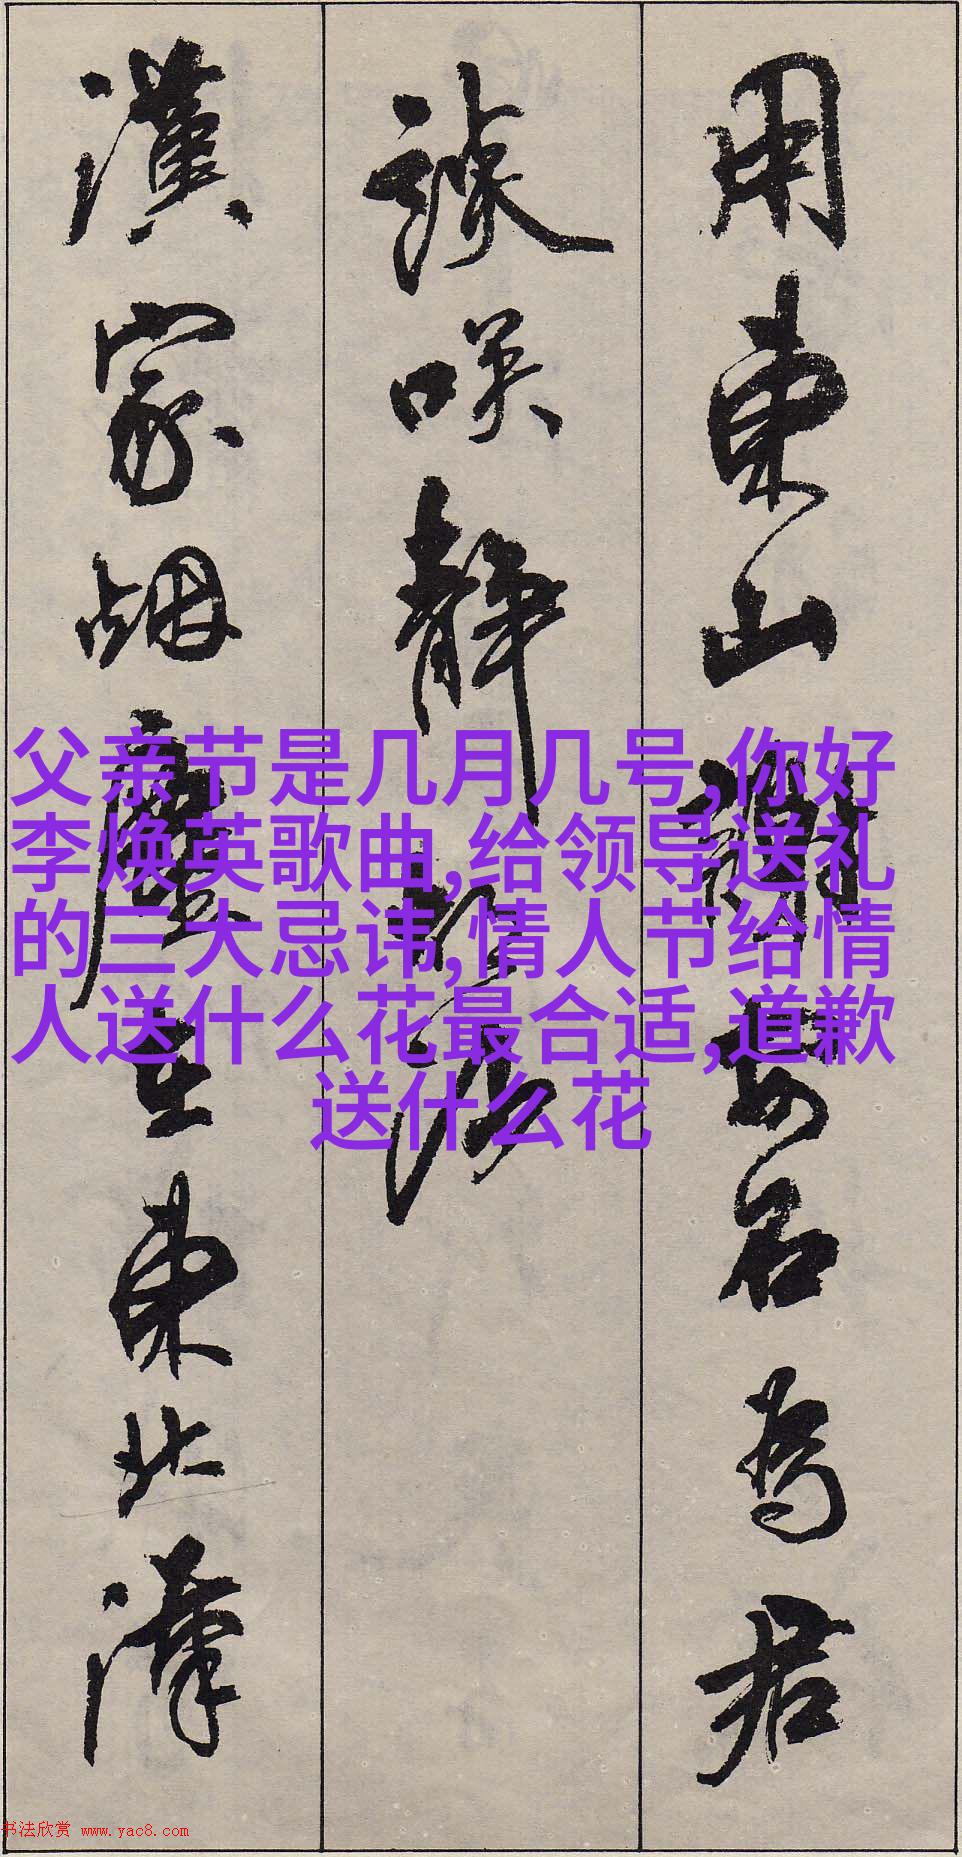 用東山謝安石為君
談咲静胡沙
漢家烟塵在東北漢
父亲节是几月几号,你好
李焕英歌曲,给领导送礼
的三大忌讳,情人节给情
人送什么花最合适,道歉
送什么花
书法欣赏 www.yac8.com